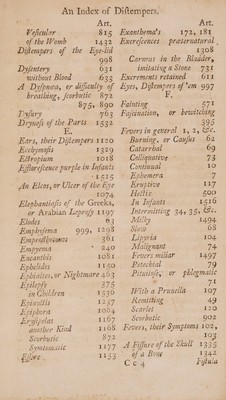 An Index of Distempers.
Art.
Vesicular 815
of the Womb 1432
Distempers of the Eye-lid
998
Dysentery 631
without Blood 633
A Dyspnœa, or difficulty of
breathing, scorbutic 872
875, 890
Dysury 763
Dryness of the Parts 1532
E.
Ears, their Distempers 1120
Ecchymosis 1239
Ectropium 1018
Efflorescence purple in Infants
1515
An Elcos, or Ulcer of the Eye
1074
Elephantiasis of the Greeks,
or Arabian Leprosy 1197
Elodes 63
Emphysema 999, 1298
Emprosthotonos 361
Empyema 240
Encanthis 1081
Ephelides 1150
Ephialtes, or Nightmare 463
Epilepsy 375
in Children 1536
Epinyctis 1257
Epiphora 1084
Erysipelas 1167
another Kind 1168
Scorbutic 872
Symtomatic 1177
Fissure 1153
Art.
Exanthema's 172, 181
Excrescences præternatural
1308
Carnous in the Bladder,
imitating a Stone 731
Excrements retained 611
Eyes, Distempers of 'em 997
F.
Fainting 571
Fascination, or bewitching
395
Fevers in general 1, 2, &c.
Burning, or Causus 62
Catarrhal 69
Colliquative 73
Continual 10
Ephemera 7
Eruptive 127
Hectic 500
In Infants 1516
Intermitting 34, 35, &c.
Milky 1494
Slow 68
Lipyria 104
Malignant 74
Fevers miliar 1497
Petechial 79
Pituitose, or phlegmatic
71
With a Prunella 107
Remitting 49
Scarlet 120
Scorbutic 902
Fevers, their Symptoms 102,
103
A Fissure of the Skull 1335
of a Bone 1342
C c 4 Fistula